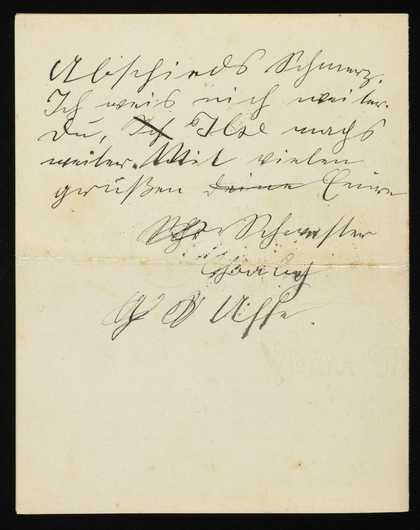 Abschieds Schmerz.
Ich weis nich weiter.
Du, Ich Ilse machs
weiter. Mit vielen
grüßen deine Eure
Schwester
Affe.